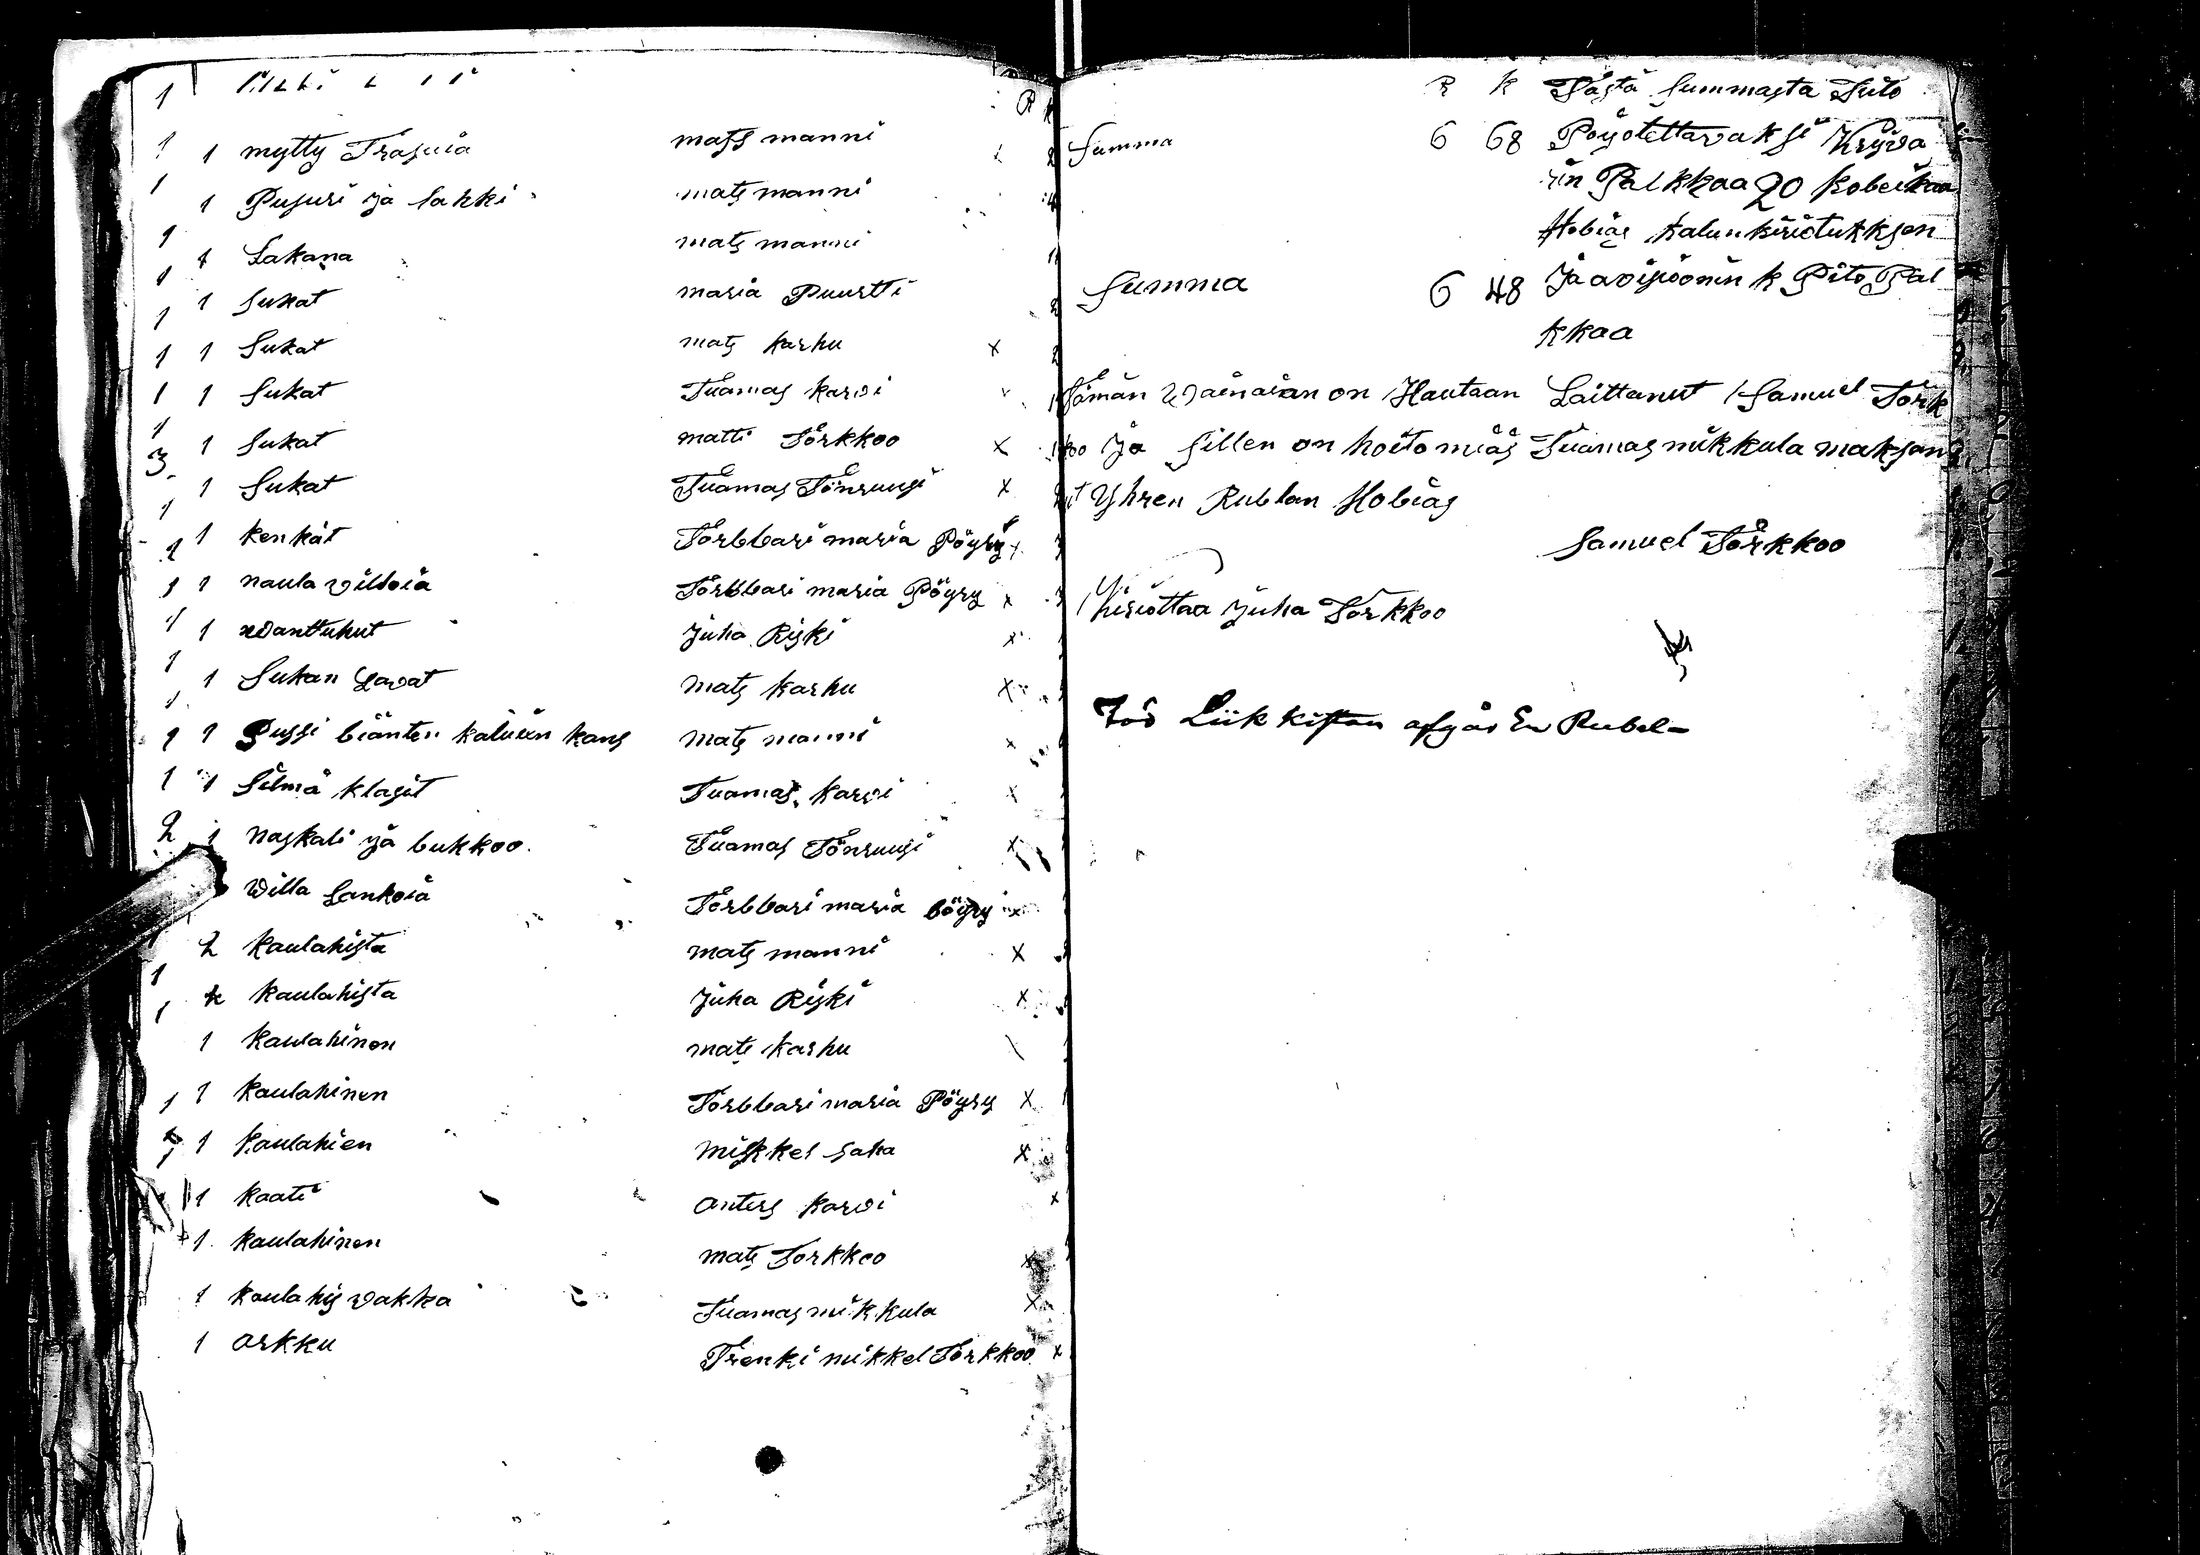 R k
1 mytty Trasuia mats manni
1 Pusuri ja lakki mats manni
1 Lakana mats manni
1 sukat maria Puurtti
1 Sukat mats karhu x
1 Sukat Tuamas karvi
1 Sukat matti Törkkoo x
1 Sukat Tuamas Tönruusi x
1 kenkät Torbbari maria Pöyry x
1 naula villoia Torbbari maria Pöyry x
1 wanttuhut Juha Riski x
1 Sukan Lavat mats karhu x
1 Pussi biänten kaluien kans mats manni x
1 Silmä klasit Tuamas karvi x
1 Naskali ja bukkoo Tuamas Tönruusi x
Willa Lankoia Torbbari maria böyry x
2 kaulahista mats manni x
kaulahista Juha Riski x
1 kaulahinen mats karhu
1 kaulahinen Torbbari maria Pöyry x
1 kaulahien Mikkel saha x
1 kaati anters karvi x
1 kaulahinen mats Torkkoo x
1 kaulahis vakka Tuamas mikkula x
1 arkku Trenki mikkel Törkkoo x
R k Tästä summasta Tuto
Summa 6 68 Pöyotettavaksi kryva
rin Palkkaa 20 kobeikaa
Hobias kalun kiriotukksen
Summa 6 48 ja avisioonin k Pito Pal
kkaa
Tämän Wainaian on Hautaan Laittanut Samuel Törk
koo Ja sillen on hoito miäs Tuamas mikkula maksan
ut Yhren Rublan Hobias
Samuel Törkkoo
kiriottaa Juha Törkkoo
För Liik kistan afgår En Rubel-